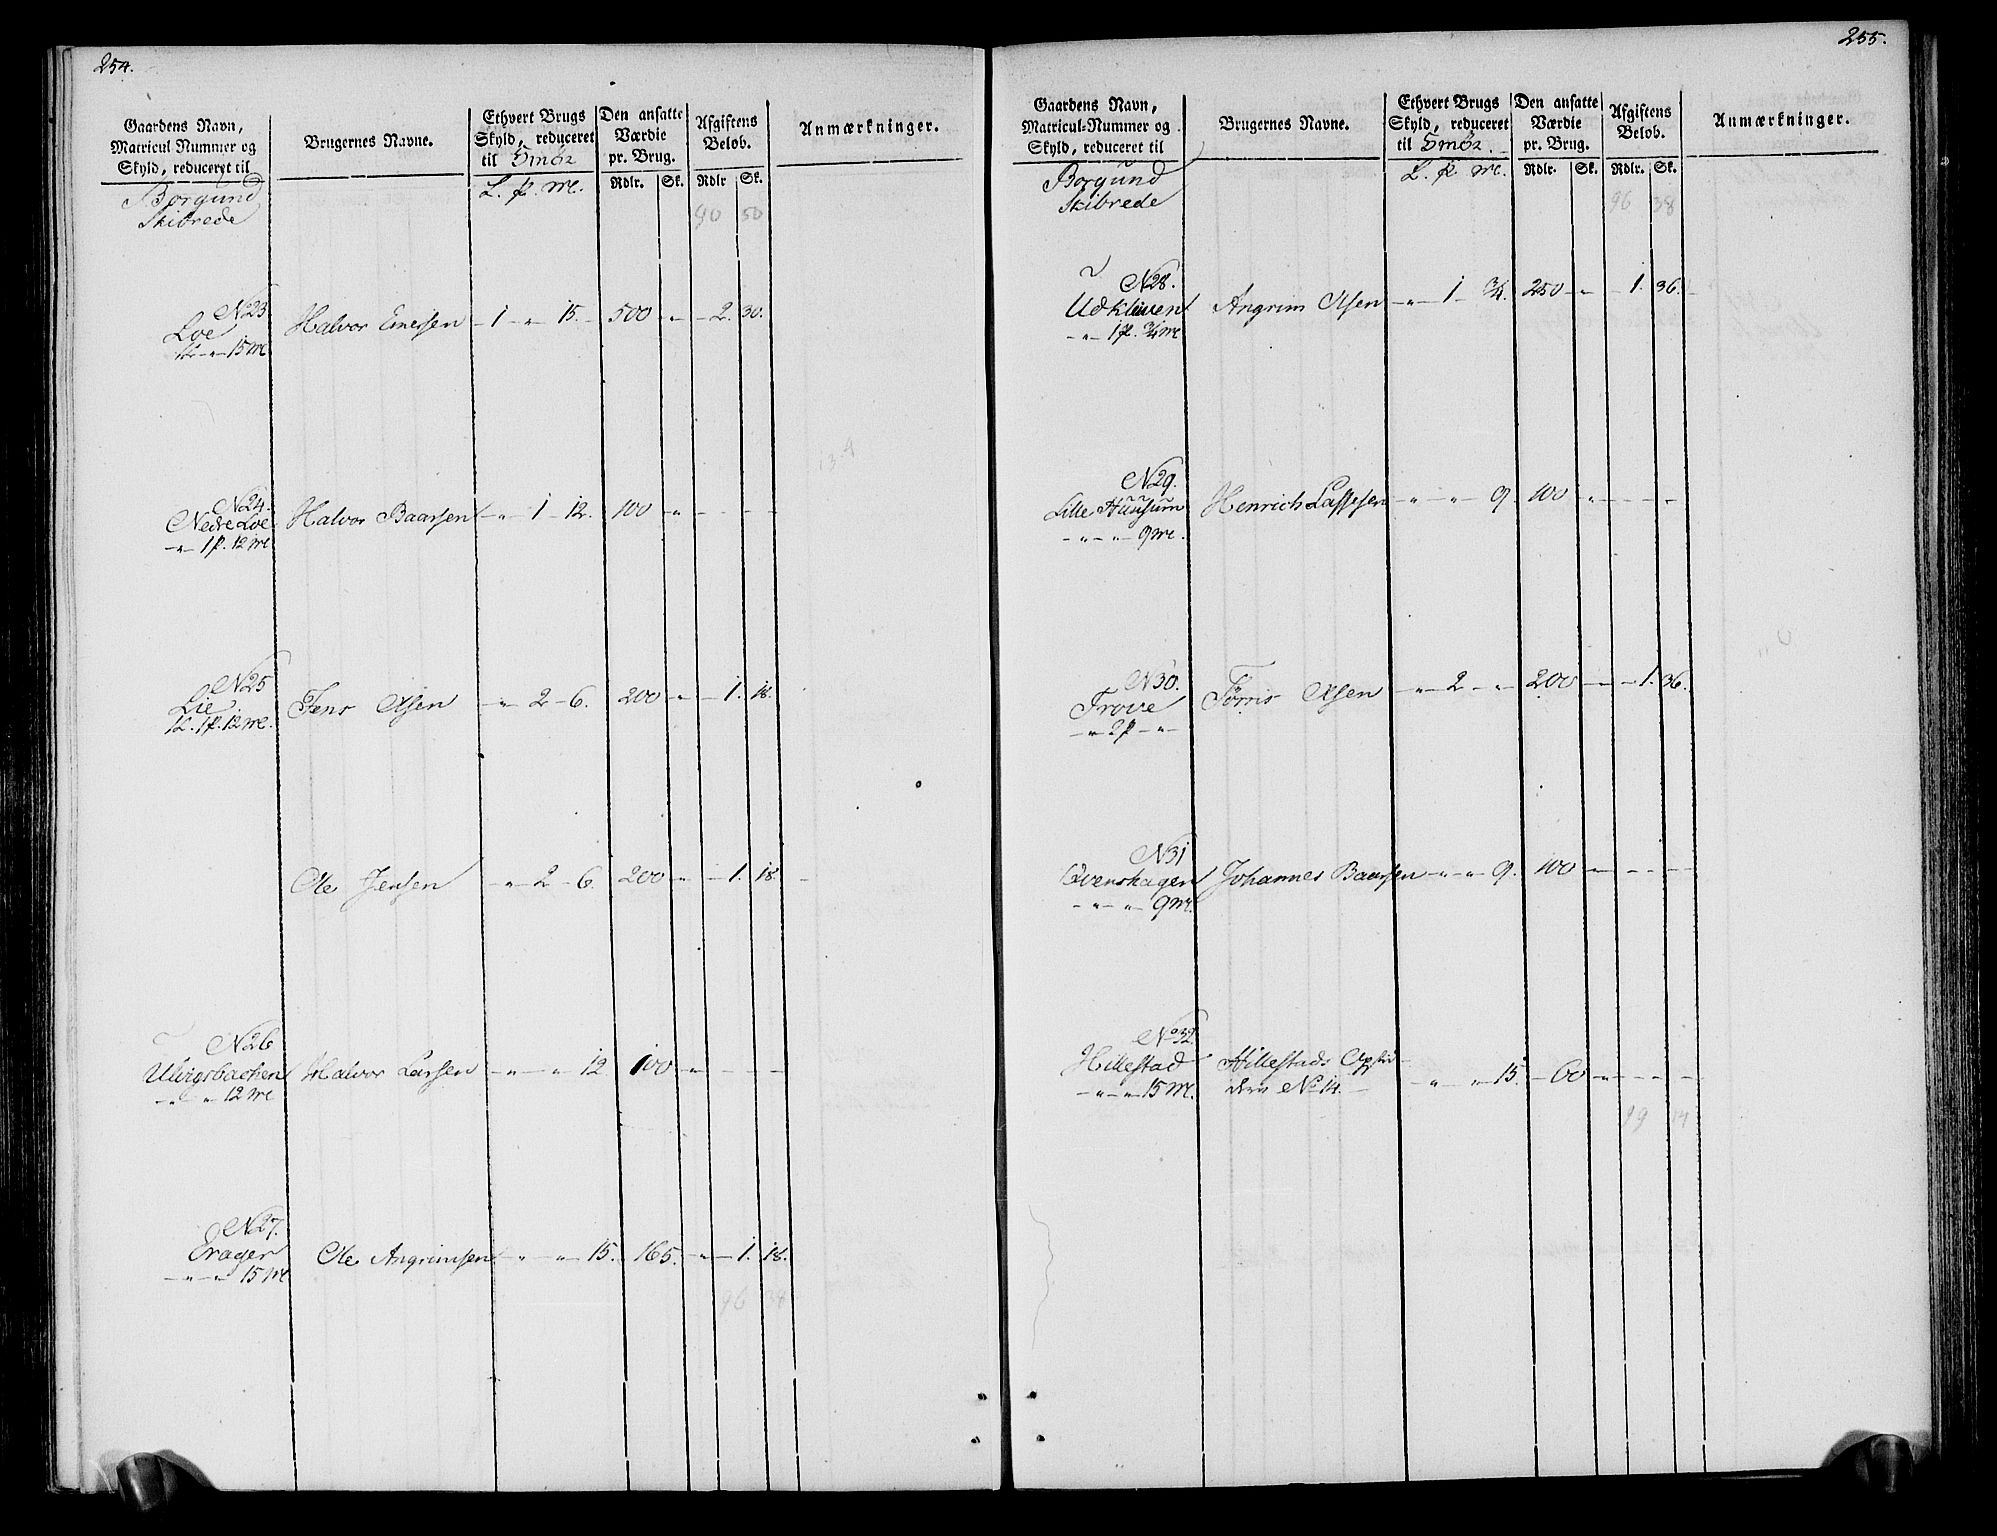 254.
Gaardens Navn,
Matricul Nummer og
Skyld, reduceret til
Brugernes Navne.
Ethvert Brugs
Skyld, reduceret
til Smör
Den ansatte
Værdie
pr. Brug.
Afgiftens
Beløb.
Anmærkninger.
L. p. mr.
Rdlr. Sk. Rdlr Sk.
Borgund
Skibrede
90 50
No 23
Loe
1L - " - 15 mr
Halvor Enersen - 1 - " - 15. - 500 - " - 2. 30.
No 24.
Nedre Loe
- " - 1 p. 12 mr.
Halvor Baarsen - " - 1 - 12. - 100 - " - - - -
No 25
Lie
1L. 1 p. 12 mr.
Jens Olsen - " - 2 - 6. 200 - " - 1. 18.
Ole Jensen - " - 2 - 6. 200 - " - 1. 18. -
No 26
Ulvigsbachen
- " - " 12 mr
Halvor Larsen - " - " 12 100 - " - - - -
No 27.
Erager
- " - " - 15 mr
Ole Angrimsen - " - " - 15. 165. - " - 1. 18.
96 38
255.
Gaardens Navn,
Matricul-Nummer og
Skyld, reduceret til
Brugernes Navne.
Ethvert Brugs
Skyld, reduceret
til Smör.
Den ansatte
Værdie
pr. Brug.
Afgiftens
Beløb.
Anmærkninger.
L. p. mr.
Rdlr. Sk. Rdlr. Sk.
Borgund
Skibrede
96 38
No 28.
Udkleven
- " - 1 p. 3/4 mr
Angrim Olsen - " - 1 - 3/4. 250 - " - 1. 36. -
No 29.
Lille Huusum
- " - " - 9 mr.
Henrich Lassesen - " - " - 9. 100 - " - - - -
No 30.
Trove
- " - 2 p - " -
Tørris Olsen - " - 2 - " - 200 - " - 1. 36.
No 31
Qvenshagen
- " - " - 9 mr.
Johannes Baarsen - " - " 9. 100 - " - - - -
No 32
Hillestad
- " - " 15 mr.
Hillestads Opsid-
dere No 14. - - " - " 15. - 60 - " - - - -
99 14